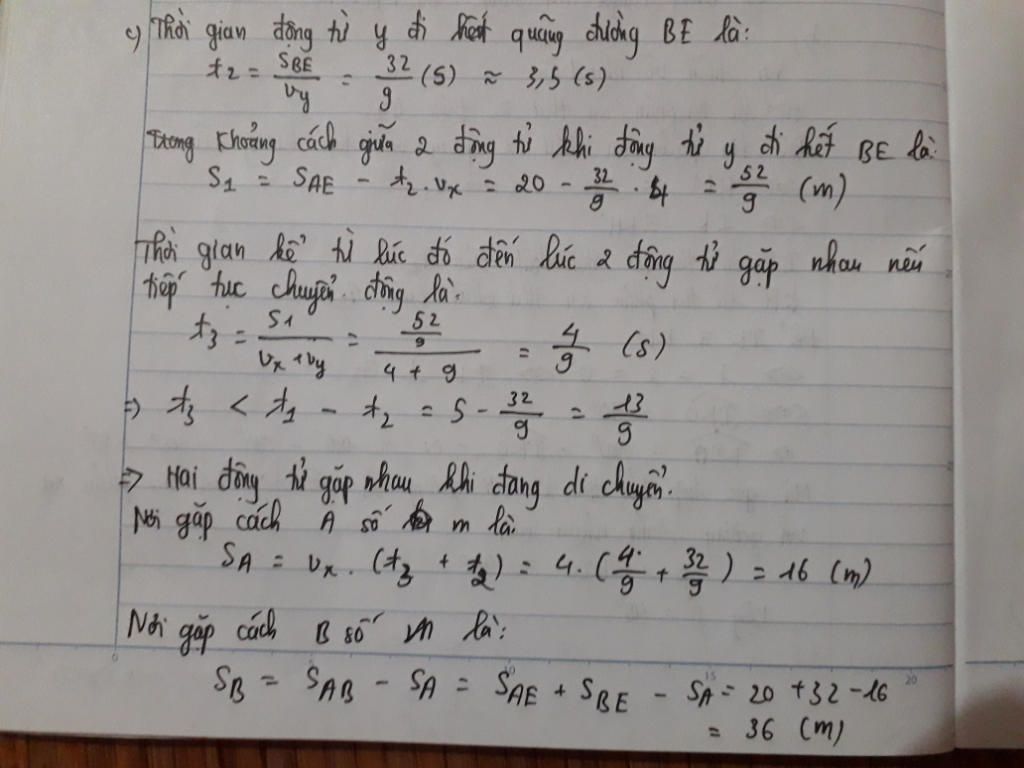 c) Thời gian động tử y đi hết quãng đường BE là:
t2 = SBE/vy = 32/9 (s) ≈ 3,5 (s)
Khoảng cách giữa 2 động tử khi động tử y đi hết BE là:
S1 = SAE - t2.vx = 20 - 32/9 . 4 = 52/9 (m)
Thời gian kể từ lúc đó đến lúc 2 động tử gặp nhau nếu
tiếp tục chuyển động là:
t3 = S1/(vx + vy) = (52/9)/(4 + 9) = 4/9 (s)
=> t3 < t1 - t2 = 5 - 32/9 = 13/9
=> Hai động tử gặp nhau khi đang di chuyển.
Nơi gặp cách A số m là:
SA = vx . (t3 + t2) = 4. (4/9 + 32/9) = 16 (m)
Nơi gặp cách B số m là:
SB = SAB - SA = SAE + SBE - SA = 20 + 32 - 16
= 36 (m)